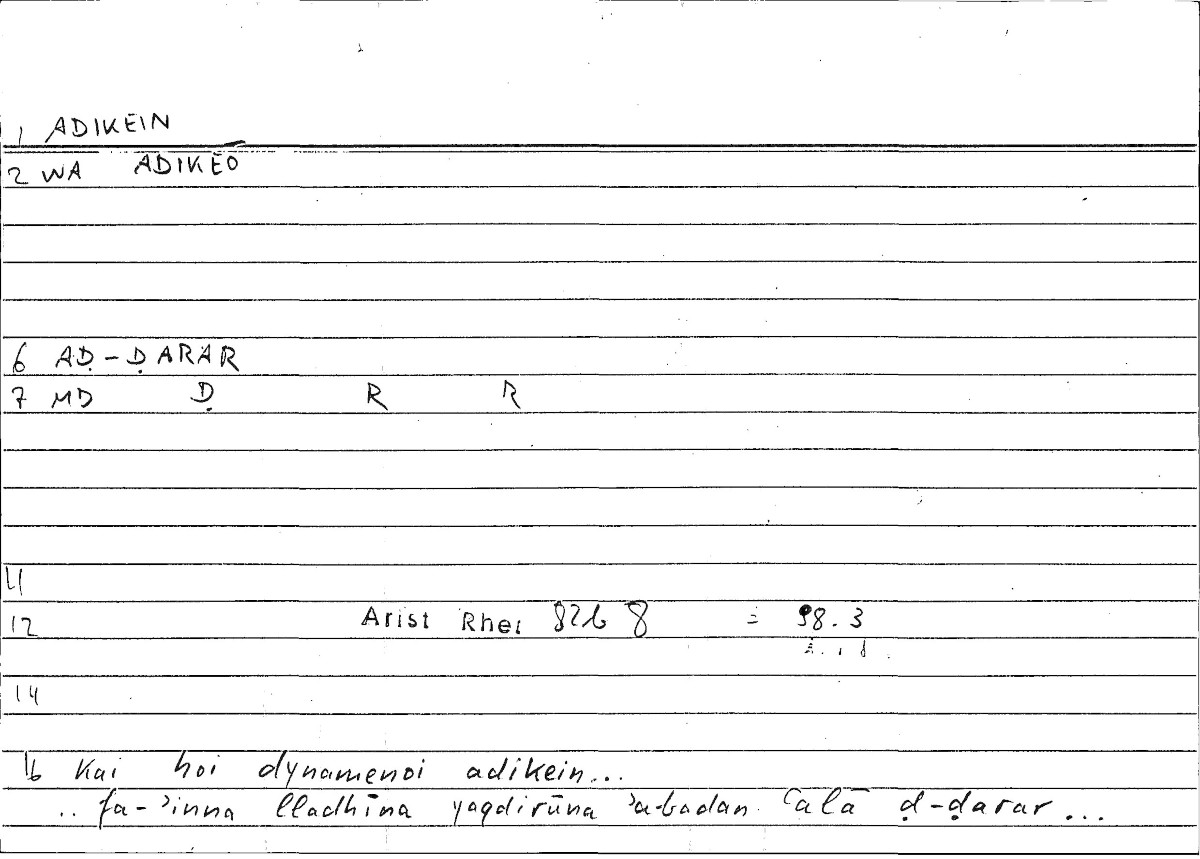 1 ADIKEIN
2 WA ADIKEŌ
6 AḌ-ḌARAR
7 MD Ḍ R R
11
12 Arist Rhet 82b 8 = 98.3
14
16 Kai hoi dynamenoi adikein...
.. fa-ʾinna lladhīna yaqdirūna ʾa-badan ʿalā ḍ-ḍarar...